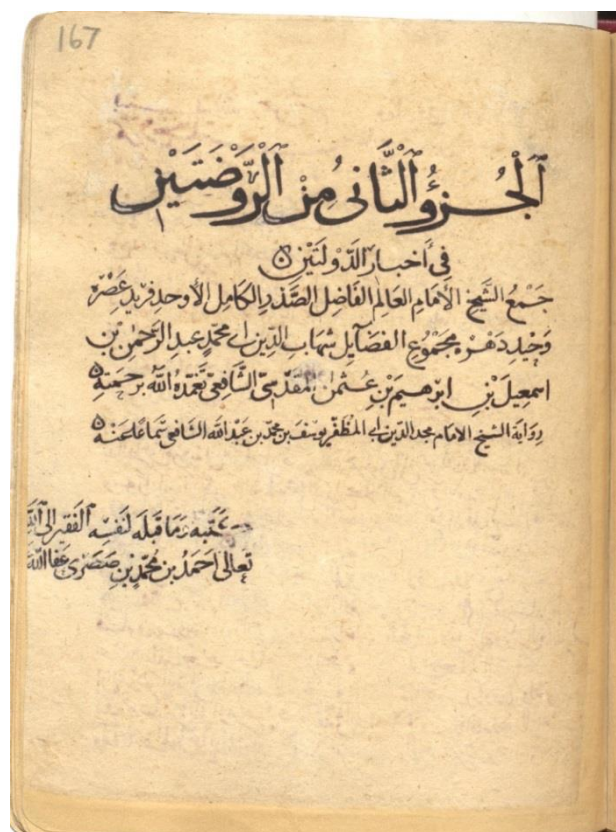 167
الجُزؤُ الثَّانى مِنْ الرَّوْضَتَيْنِ
فى أخبار الدَّوْلَتَيْنِ
جَمْعُ الشَّيخ الأمَامِ العَالِم الفَاضِلِ الصَّدْرِ الكَامِلِ الأوحدِ فَرِيْدِ عَصْرِه
وَحِيْدِ دَهْرِه مَجمُوْعِ الفَضَايل شهَابِ الدِّين اى محمدٍ عبدِ الرَّحمنِ بْنِ
اسمعيلَ بْنِ ابرهيمَ بْنِ عثمنَ المَقدسِىّ الشَّافعىّ تَغَمَّدَهُ اللهُ برَحمَتِهِ
رِوَاية الشيخ الامام مجد الدين اى المظفر يوسف بن محمد بن عبد الله الشافعى سَمَاعًا عنه
كَتَبَه وَمَا قَبلَه لنَفسِهِ الفَقير الى الله
تعالى احمَدُ بن محمَّدِ بْنِ صَصَرى عَفَا اللهُ